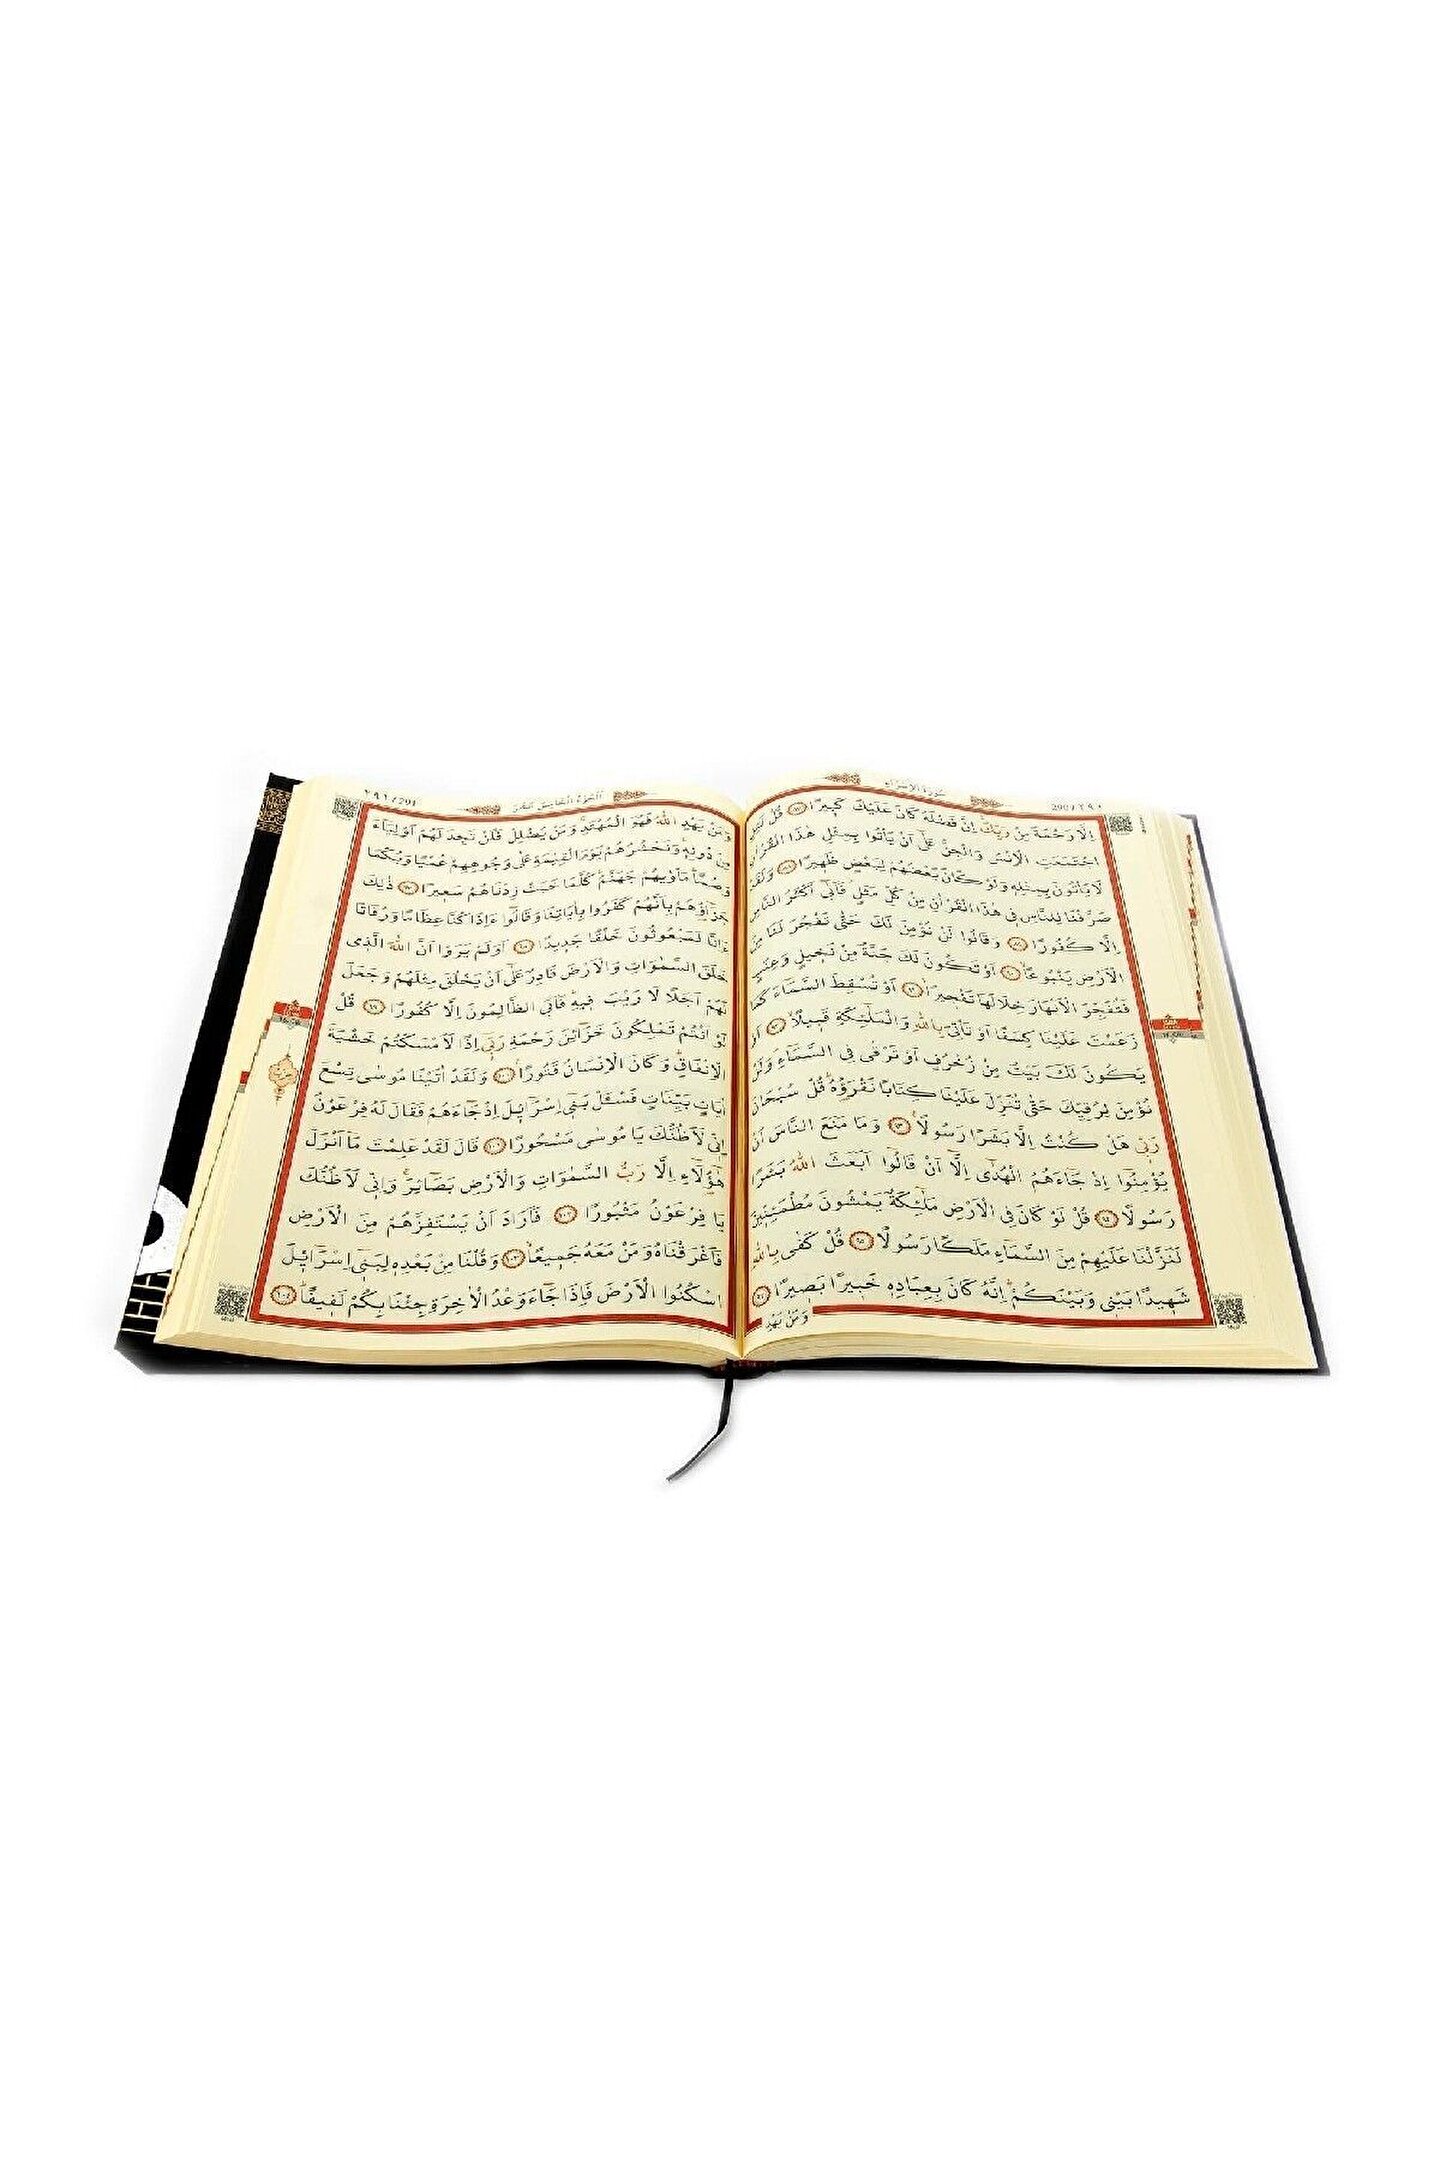 290 / ٢٩٠
سُورَةُ الْاِسْرَاءِ
اِلَّا رَحْمَةً مِنْ رَبِّكَۜ اِنَّ فَضْلَهُ كَانَ عَلَيْكَ كَب۪يرًا ﴿٨٧﴾ قُلْ لَئِنِ
اجْتَمَعَتِ الْاِنْسُ وَالْجِنُّ عَلٰٓى اَنْ يَأْتُوا بِمِثْلِ هٰذَا الْقُرْاٰنِ
لَا يَأْتُونَ بِمِثْلِه۪ وَلَوْ كَانَ بَعْضُهُمْ لِبَعْضٍ ظَه۪يرًا ﴿٨٨﴾ وَلَقَدْ
صَرَّفْنَا لِلنَّاسِ ف۪ي هٰذَا الْقُرْاٰنِ مِنْ كُلِّ مَثَلٍۘ فَاَبٰٓى اَكْثَرُ النَّاسِ
اِلَّا كُفُورًا ﴿٨٩﴾ وَقَالُوا لَنْ نُؤْمِنَ لَكَ حَتّٰى تَفْجُرَ لَنَا مِنَ
الْاَرْضِ يَنْبُوعًاۙ ﴿٩٠﴾ اَوْ تَكُونَ لَكَ جَنَّةٌ مِنْ نَخ۪يلٍ وَعِنَبٍ
فَتُفَجِّرَ الْاَنْهَارَ خِلَالَهَا تَفْج۪يرًاۙ ﴿٩١﴾ اَوْ تُسْقِطَ السَّمَٓاءَ كَمَا
زَعَمْتَ عَلَيْنَا كِسَفًا اَوْ تَأْتِيَ بِاللّٰهِ وَالْمَلٰٓئِكَةِ قَب۪يلًاۙ ﴿٩٢﴾ اَوْ
يَكُونَ لَكَ بَيْتٌ مِنْ زُخْرُفٍ اَوْ تَرْقٰى فِي السَّمَٓاءِۜ وَلَنْ
نُؤْمِنَ لِرُقِيِّكَ حَتّٰى تُنَزِّلَ عَلَيْنَا كِتَابًا نَقْرَؤُ۬هُۜ قُلْ سُبْحَانَ
رَبّ۪ي هَلْ كُنْتُ اِلَّا بَشَرًا رَسُولًا۟ ﴿٩٣﴾ وَمَا مَنَعَ النَّاسَ اَنْ
يُؤْمِنُٓوا اِذْ جَٓاءَهُمُ الْهُدٰٓى اِلَّٓا اَنْ قَالُٓوا اَبَعَثَ اللّٰهُ بَشَرًا
رَسُولًا ﴿٩٤﴾ قُلْ لَوْ كَانَ فِي الْاَرْضِ مَلٰٓئِكَةٌ يَمْشُونَ مُطْمَئِنّ۪ينَ
لَنَزَّلْنَا عَلَيْهِمْ مِنَ السَّمَٓاءِ مَلَكًا رَسُولًا ﴿٩٥﴾ قُلْ كَفٰى بِاللّٰهِ
شَه۪يدًا بَيْن۪ي وَبَيْنَكُمْۜ اِنَّهُ كَانَ بِعِبَادِه۪ خَب۪يرًا بَص۪يرًا ﴿٩٦﴾
وَمَنْ يَهْدِ
291 / ٢٩١
اَلْجُزْءُ الْخَامِسَ عَشَرَ
وَمَنْ يَهْدِ اللّٰهُ فَهُوَ الْمُهْتَدِۚ وَمَنْ يُضْلِلْ فَلَنْ تَجِدَ لَهُمْ اَوْلِيَٓاءَ
مِنْ دُونِه۪ۜ وَنَحْشُرُهُمْ يَوْمَ الْقِيٰمَةِ عَلٰى وُجُوهِهِمْ عُمْيًا وَبُكْمًا
وَصُمًّاۜ مَأْوٰيهُمْ جَهَنَّمُۜ كُلَّمَا خَبَتْ زِدْنَاهُمْ سَع۪يرًا ﴿٩٧﴾ ذٰلِكَ
جَزَٓاؤُ۬هُمْ بِاَنَّهُمْ كَفَرُوا بِاٰيَاتِنَا وَقَالُٓوا ءَاِذَا كُنَّا عِظَامًا وَرُفَاتًا
ءَاِنَّا لَمَبْعُوثُونَ خَلْقًا جَد۪يدًا ﴿٩٨﴾ اَوَلَمْ يَرَوْا اَنَّ اللّٰهَ الَّذ۪ي
خَلَقَ السَّمٰوَاتِ وَالْاَرْضَ قَادِرٌ عَلٰٓى اَنْ يَخْلُقَ مِثْلَهُمْ وَجَعَلَ
لَهُمْ اَجَلًا لَا رَيْبَ ف۪يهِۜ فَاَبَى الظَّالِمُونَ اِلَّا كُفُورًا ﴿٩٩﴾ قُلْ
لَوْ اَنْتُمْ تَمْلِكُونَ خَزَٓائِنَ رَحْمَةِ رَبّ۪ٓي اِذًا لَاَمْسَكْتُمْ خَشْيَةَ
الْاِنْفَاقِۜ وَكَانَ الْاِنْسَانُ قَتُورًا۟ ﴿١٠٠﴾ وَلَقَدْ اٰتَيْنَا مُوسٰى تِسْعَ
اٰيَاتٍ بَيِّنَاتٍ فَسْـَٔلْ بَن۪ٓي اِسْرَٓائ۪لَ اِذْ جَٓاءَهُمْ فَقَالَ لَهُ فِرْعَوْنُ
اِنّ۪ي لَاَظُنُّكَ يَا مُوسٰى مَسْحُورًا ﴿١٠١﴾ قَالَ لَقَدْ عَلِمْتَ مَٓا اَنْزَلَ
هٰٓؤُ۬لَٓاءِ اِلَّا رَبُّ السَّمٰوَاتِ وَالْاَرْضِ بَصَٓائِرَۚ وَاِنّ۪ي لَاَظُنُّكَ
يَا فِرْعَوْنُ مَثْبُورًا ﴿١٠٢﴾ فَاَرَادَ اَنْ يَسْتَفِزَّهُمْ مِنَ الْاَرْضِ
فَاَغْرَقْنَاهُ وَمَنْ مَعَهُ جَم۪يعًاۙ ﴿١٠٣﴾ وَقُلْنَا مِنْ بَعْدِه۪ لِبَن۪ٓي اِسْرَٓائ۪لَ
اسْكُنُوا الْاَرْضَ فَاِذَا جَٓاءَ وَعْدُ الْاٰخِرَةِ جِئْنَا بِكُمْ لَف۪يفًاۜ ﴿١٠٤﴾